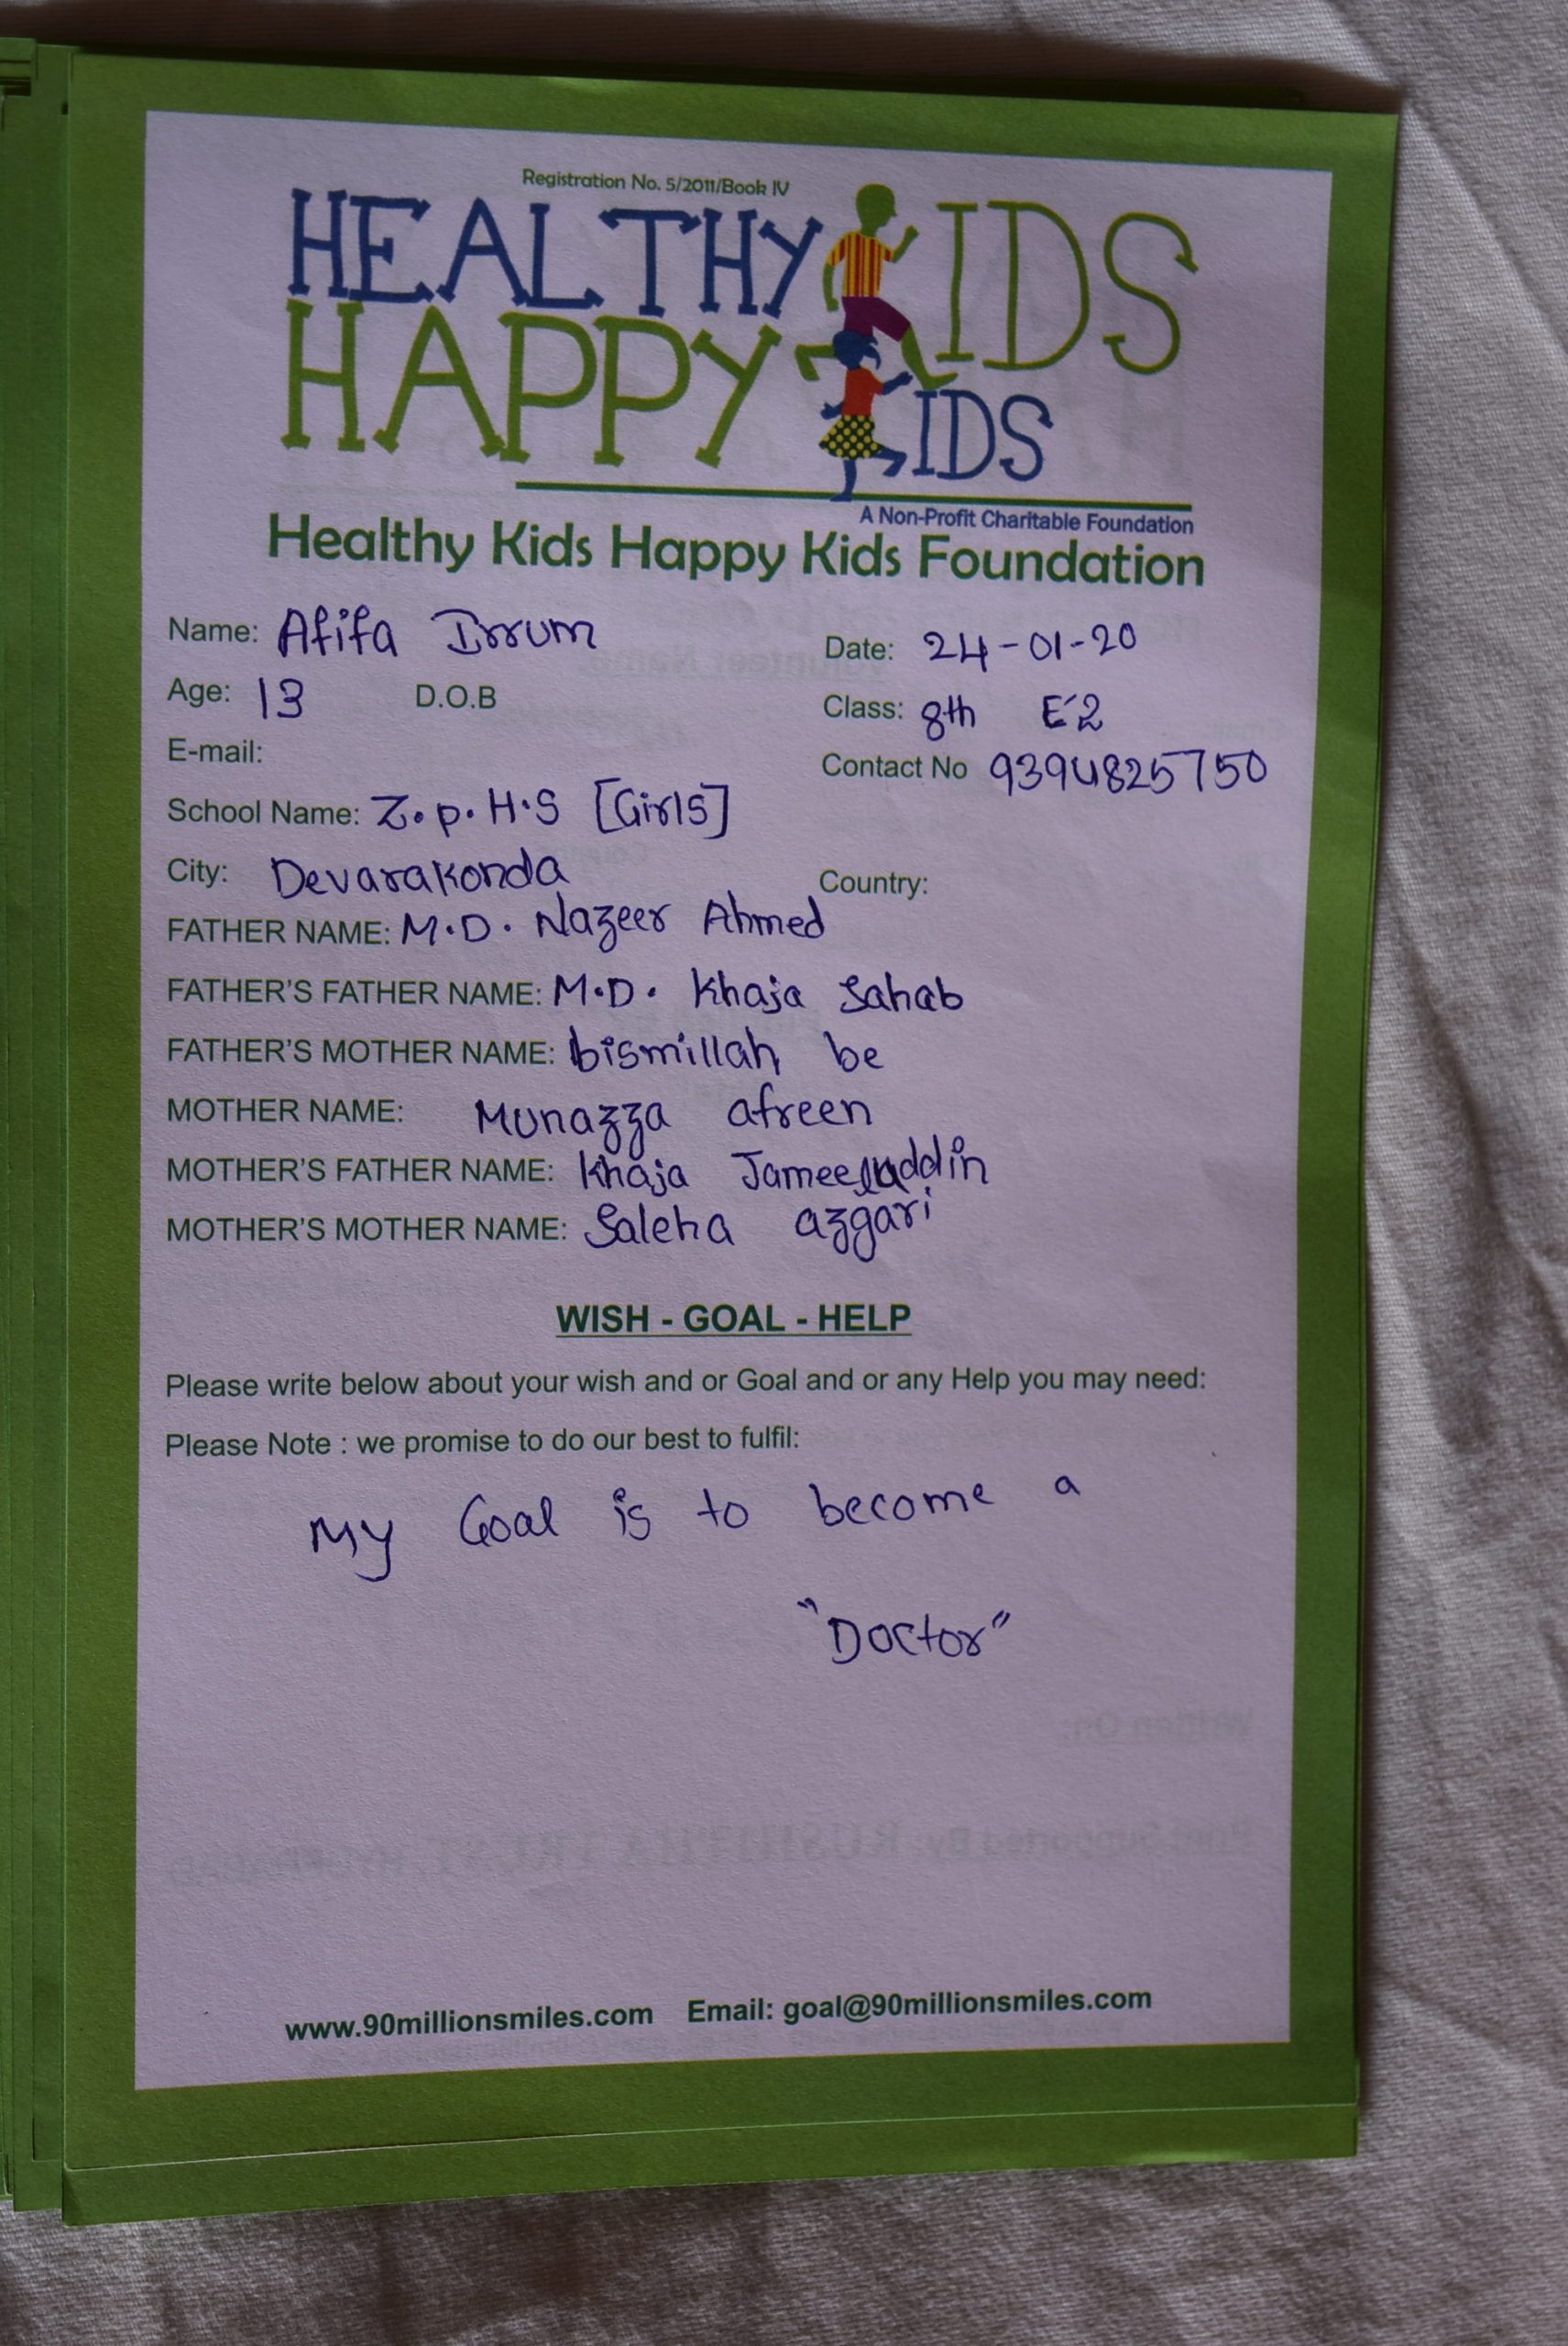 Registration No. 5/2011/Book IV
HEALTHY KIDS
HAPPY KIDS
A Non-Profit Charitable Foundation
Healthy Kids Happy Kids Foundation
Name: Afifa Irrum Date: 24-01-20
Age: 13 D.O.B Class: 8th E2
E-mail: Contact No 9394825750
School Name: Z.p.H.S [Girls]
City: Devarakonda Country:
FATHER NAME: M.D. Nazeer Ahmed
FATHER'S FATHER NAME: M.D. Khaja Sahab
FATHER'S MOTHER NAME: bismillah be
MOTHER NAME: Munazza afreen
MOTHER'S FATHER NAME: Khaja Jameeluddin
MOTHER'S MOTHER NAME: Saleha azgari
WISH - GOAL - HELP
Please write below about your wish and or Goal and or any Help you may need:
Please Note : we promise to do our best to fulfil:
My Goal is to become a
"Doctor"
www.90millionsmiles.com Email: goal@90millionsmiles.com